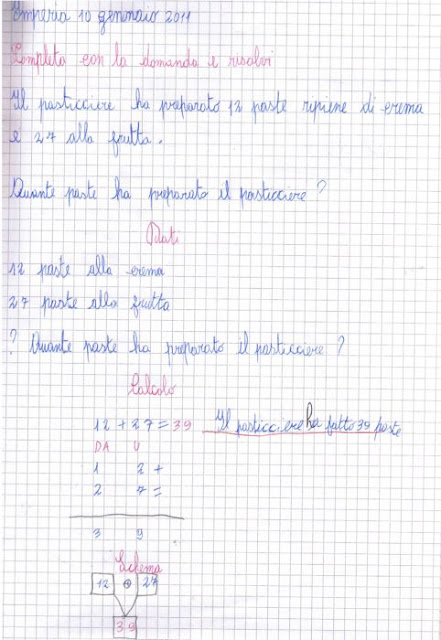 Imperia 10 gennaio 2011
Completa con la domanda e risolvi
Il pasticciere ha preparato 12 paste ripiene di crema
e 27 alla frutta.
Quante paste ha preparato il pasticciere?
Dati
12 paste alla crema
27 paste alla frutta
? Quante paste ha preparato il pasticciere?
Calcolo
12 + 27 = 39 Il pasticciere ha fatto 39 paste
DA U
1 2 +
2 7 =
3 9 .
Schema
12 + 27
39